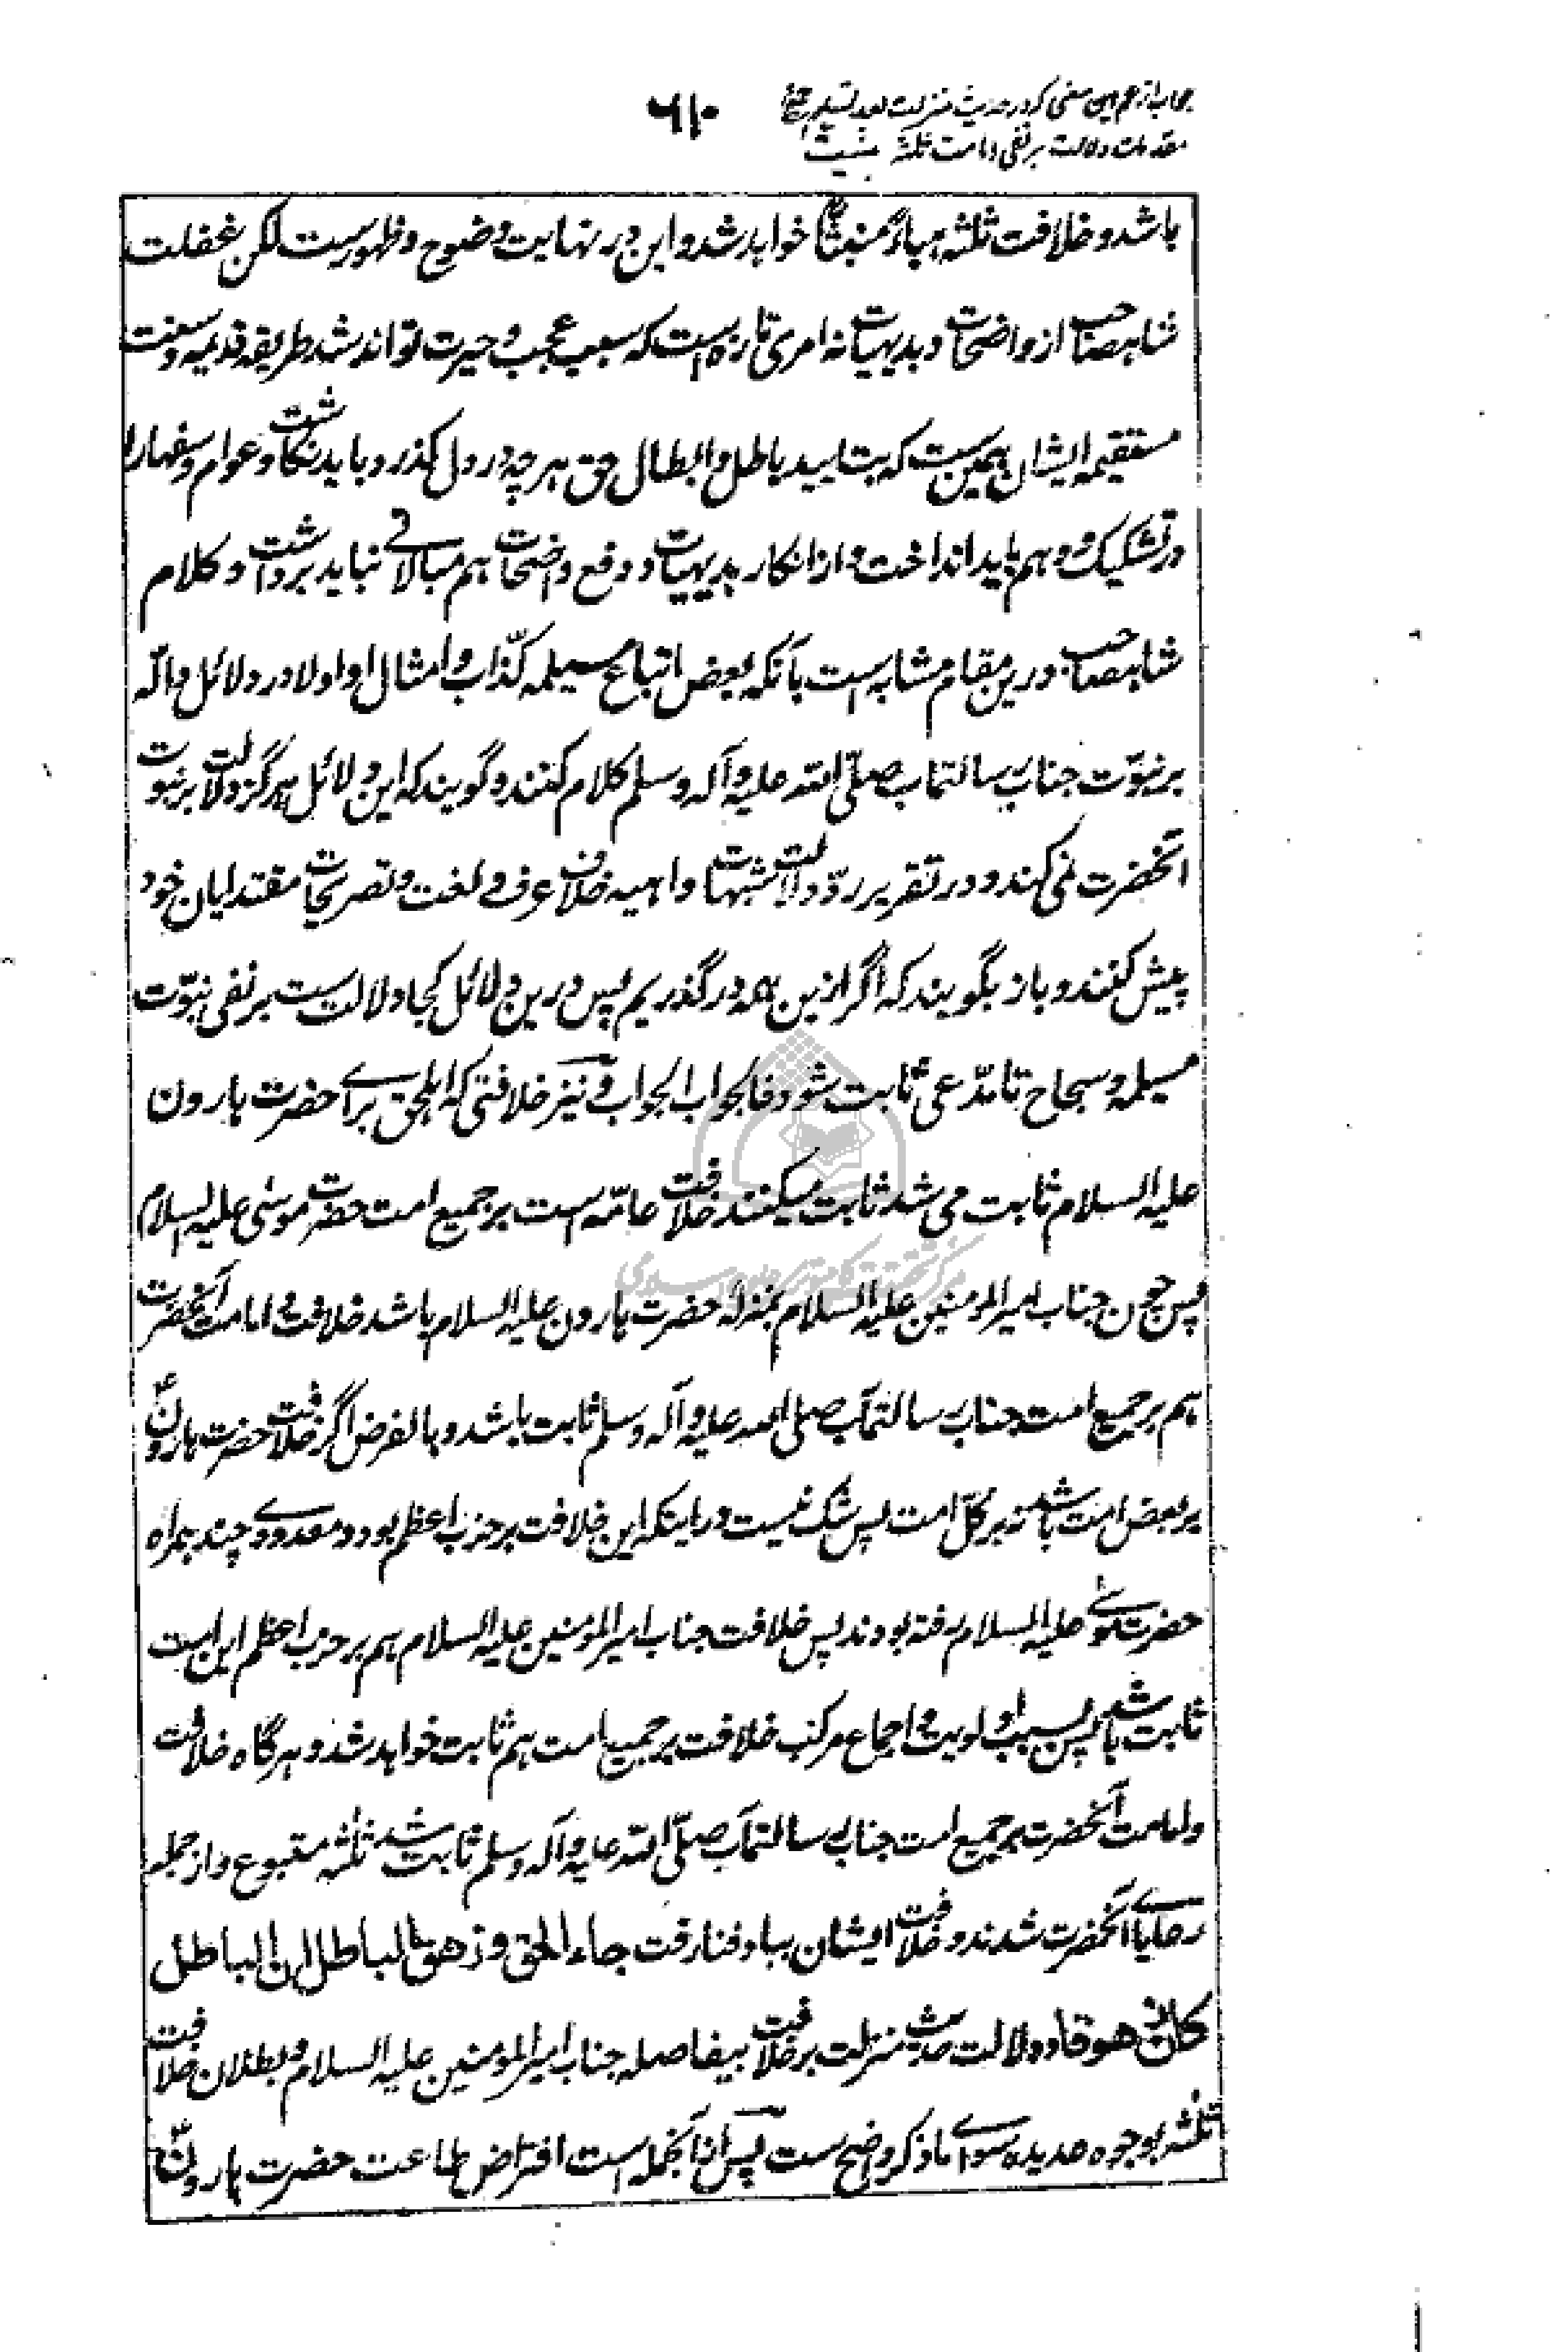 ۶۱۰
جواب از عم این معنی که در حدیث منزلت بعد تسلیم جمیع
مقدمات دلالت بر نفی امامت ثلثه نیست
باشد و خلافت ثلثه هباءً منبثا خواهد شد و این در نهایت وضوح و ظهورست لکن غفلت
شاهصاحب از واضحات و بدیهیات نه امری تازه است که سبب عجب و حیرت تواند شد طریقه قدیمه و سنت
مستقیمه ایشان همین ست که بتایید باطل و ابطال حق هر چه در دل گذرد باید نگاشت و عوام و سفها را
در تشکیک و وهم باید انداخت و از انکار بدیهیات و دفع واضحات هم مبالاتی نباید برداشت و کلام
شاهصاحب درین مقام مشابه است بآنکه بعض اتباع مسیلمه کذّاب و امثال او اولا در دلائل دالّه
بر نبوّت جناب رسالتمآب صلّی الله علیه و آله و سلم کلام کنند و گویند که این دلائل هرگز دلالت بر نبوت
آنحضرت نمی کند و در تقریر ردّ دلالت شبهات واهیه خلاف عرف و لغت و تصریحات مقتدایان خود
پیش کنند و باز بگویند که اگر ازین همه در گذریم پس درین دلائل کجا دلالت ست بر نفی نبوّت
مسیلمه و سجاح تا مدّعی ثابت شود فالجواب الجواب و نیز خلافتی که اهلحق برای حضرت هارون
علیه السلام ثابت می شد ثابت میکنند خلافت عامّه است بر جمیع امت حضرت موسی علیه السلام
پس چون جناب امیر المومنین علیه السلام بمنزلهٔ حضرت هارون علیه السلام باشد خلافت و امامت آنحضرت
هم بر جمیع امت جناب رسالتمآب صلی الله علیه و آله و سلم ثابت باشد و بالفرض اگر خلافت حضرت هارون ع
بر بعض امت باشد نه بر کلّ امت پس شک نیست در اینکه این خلافت بر حزب اعظم بود و معدودی چند همراه
حضرت موسی علیه السلام رفته بودند پس خلافت جناب امیر المومنین علیه السلام هم بر حزب اعظم این امت
ثابت باشد پس بسبب اولویت و اجماع مرکب خلافت بر جمیع امت هم ثابت خواهد شد و هرگاه خلافت
و امامت آنحضرت بر جمیع امت جناب رسالتمآب صلّی الله علیه و آله و سلم ثابت شد ثلثه متبوع و از جمله
رعایای آنحضرت شدند و خلافت ایشان بباد فنا رفت جاء الحق و زهق الباطل ان الباطل
کان زهوقا و دلالت حدیث منزلت بر خلافت بیفاصله جناب امیر المومنین علیه السلام و بطلان خلافت
ثلثه بوجوه عدیده سوای ما ذکر واضح ست پس از آنجمله است افتراض طاعت حضرت هارون ع